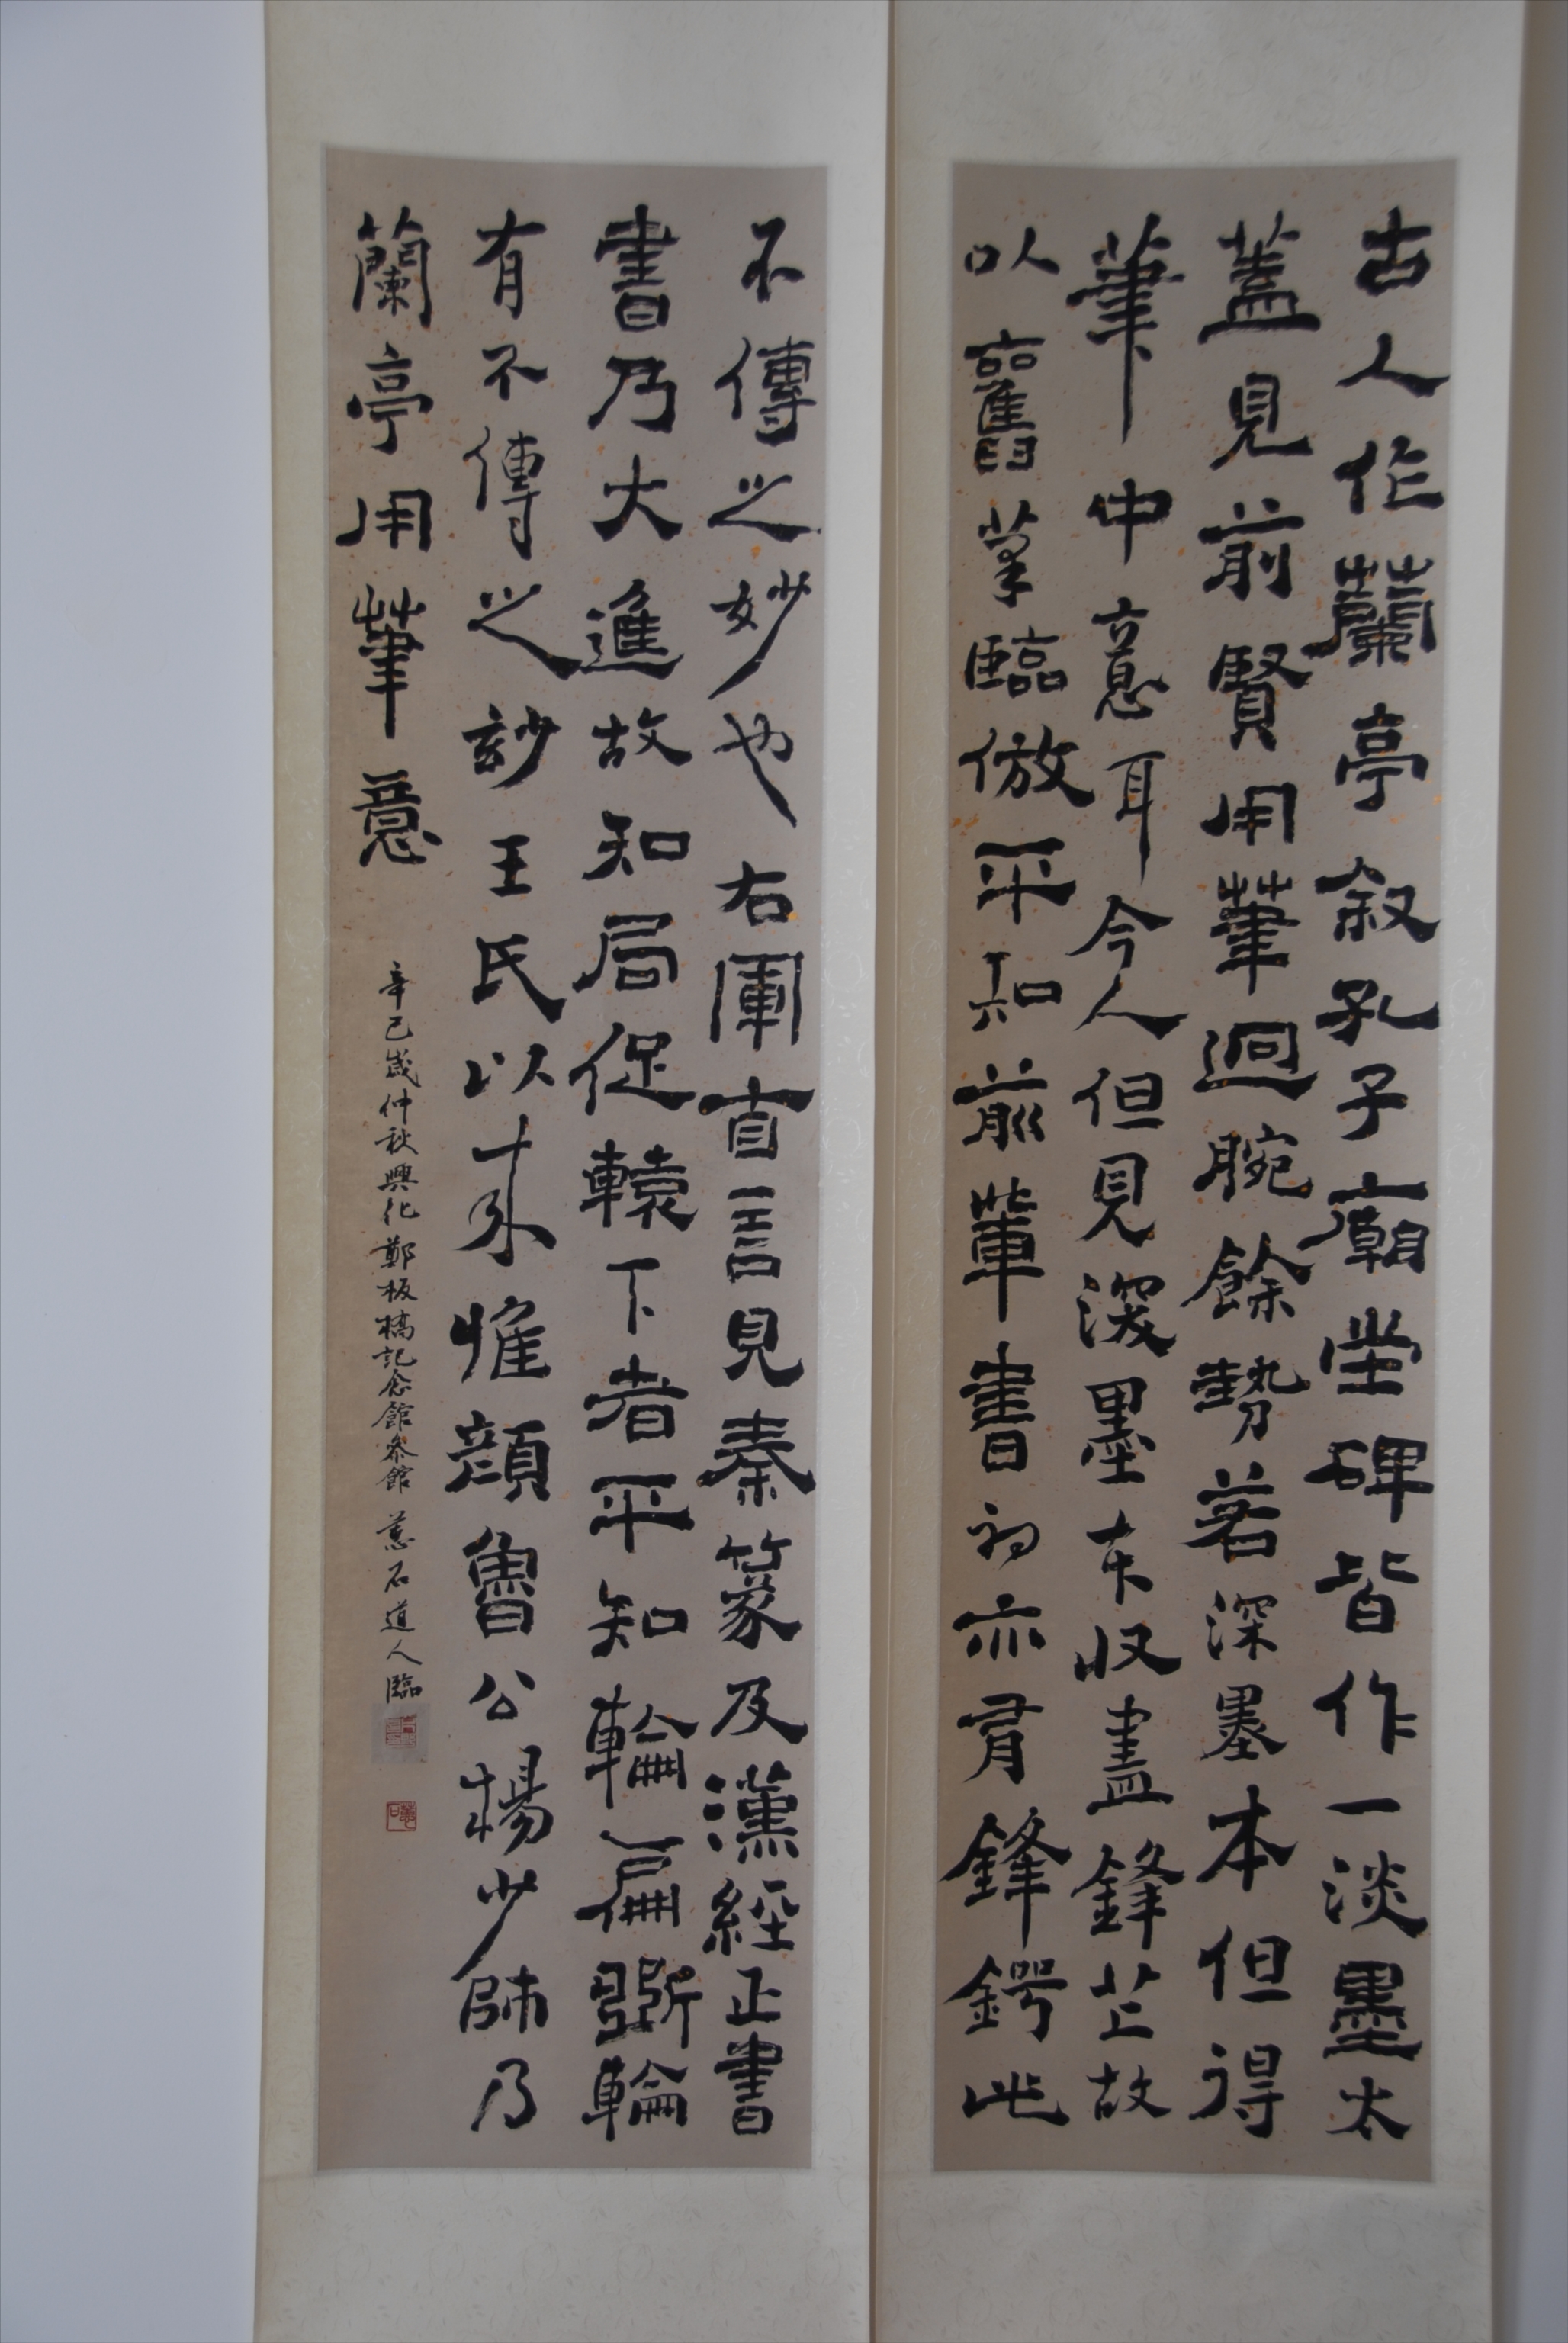 古人作蘭亭叙孔子廟堂碑皆作一淡墨太
蓋見前賢用筆迴腕餘勢若深墨本但得
筆中意耳今人但見深墨本收盡鋒芒故
以舊筆臨倣不知前輩書初亦有鋒鍔此
不傳之妙也右軍自言見秦篆及漢經正書
書乃大進故知局促轅下者不知輪扁斲輪
有不傳之妙王氏以來惟顔魯公楊少師乃
蘭亭用筆意
辛巳歲仲秋興化鄭板橋記念館參館
蕙石道人臨